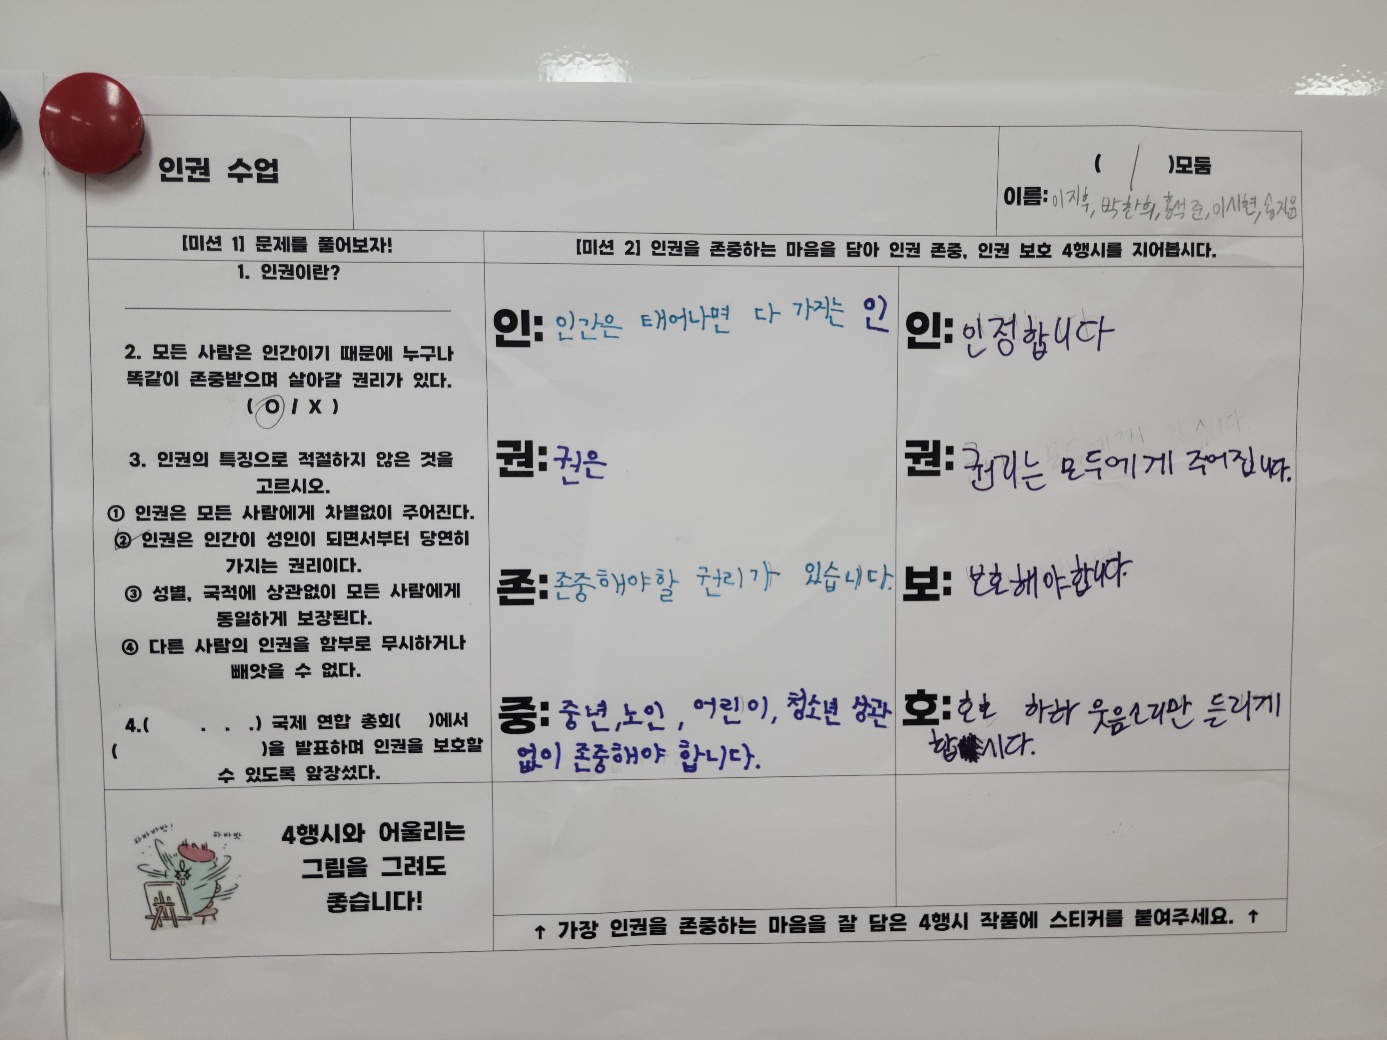 인권 수업
( / )모둠
이름: 이지후, 박찬희, 홍석준, 이시현, 송지음
[미션 1] 문제를 풀어보자!
1. 인권이란?
2. 모든 사람은 인간이기 때문에 누구나
똑같이 존중받으며 살아갈 권리가 있다.
( O / X )
3. 인권의 특징으로 적절하지 않은 것을
고르시오.
① 인권은 모든 사람에게 차별없이 주어진다.
② 인권은 인간이 성인이 되면서부터 당연히
가지는 권리이다.
③ 성별, 국적에 상관없이 모든 사람에게
동일하게 보장된다.
④ 다른 사람의 인권을 함부로 무시하거나
빼앗을 수 없다.
4.( . . .) 국제 연합 총회( )에서
( )을 발표하며 인권을 보호할
수 있도록 앞장섰다.
[미션 2] 인권을 존중하는 마음을 담아 인권 존중, 인권 보호 4행시를 지어봅시다.
인: 인간은 태어나면 다 가지는 인
권: 권은
존: 존중해야할 권리가 있습니다.
중: 중년,노인, 어린이, 청소년 상관
없이 존중해야 합니다.
인: 인정합니다
권: 권리는 모두에게 주어집니다.
보: 보호해야합니다.
호: 호호 하하 웃음소리만 들리게
합시다.
파바바밧!
파바밧
4행시와 어울리는
그림을 그려도
좋습니다!
↑ 가장 인권을 존중하는 마음을 잘 담은 4행시 작품에 스티커를 붙여주세요. ↑